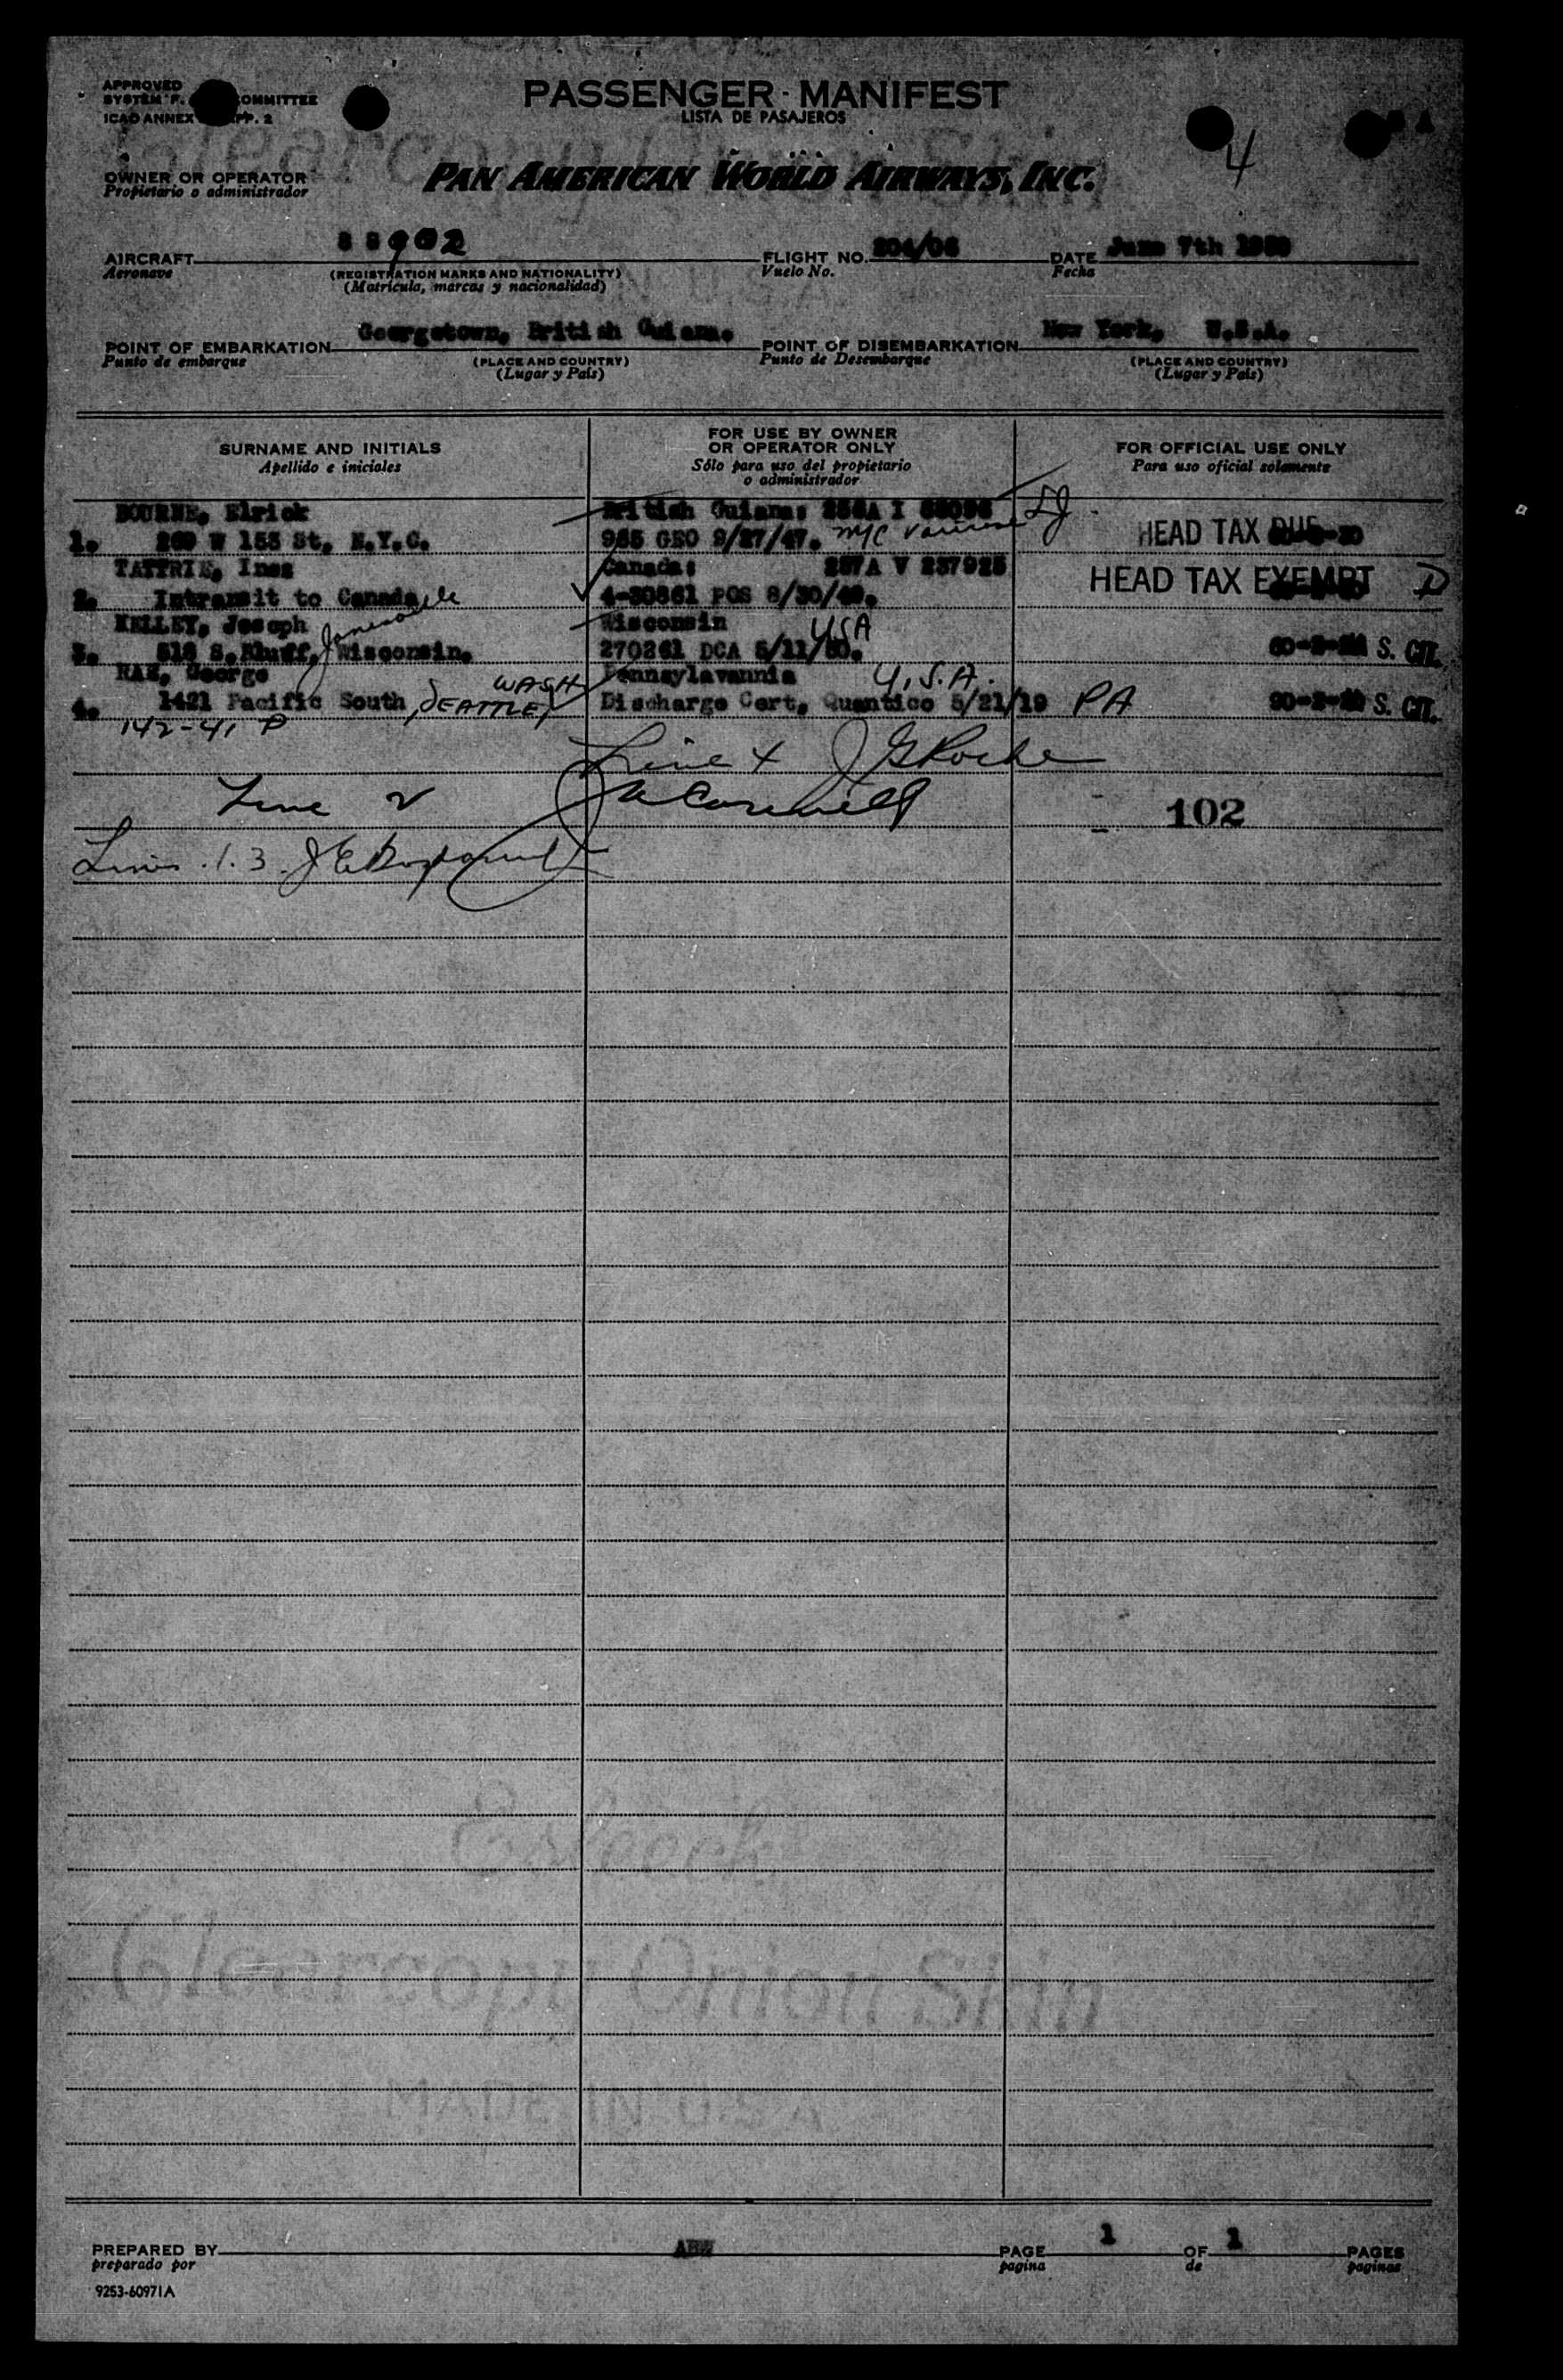 APPROVED
SYSTEM F. COMMITTEE
ICAO ANNEX APP. 2
PASSENGER - MANIFEST
LISTA DE PASAJEROS
4
OWNER OR OPERATOR
Propietario o administrador
PAN AMERICAN WORLD AIRWAYS, INC.
AIRCRAFT 88902
Aeronave
(REGISTRATION MARKS AND NATIONALITY)
(Matrícula, marcas y nacionalidad)
FLIGHT NO. 204/06
Vuelo No.
DATE June 7th 1950
Fecha
POINT OF EMBARKATION Georgetown, British Guiana.
Punto de embarque
(PLACE AND COUNTRY)
(Lugar y País)
POINT OF DISEMBARKATION New York, U.S.A.
Punto de Desembarque
(PLACE AND COUNTRY)
(Lugar y País)
SURNAME AND INITIALS
Apellido e iniciales
FOR USE BY OWNER
OR OPERATOR ONLY
Sólo para uso del propietario
o administrador
FOR OFFICIAL USE ONLY
Para uso oficial solamente
BOURNE, Elrick British Guiana: 256A I
1. 269 W 153 St, N.Y.C. 985 GEO 9/27/47. NYC HEAD TAX DUE
TATTRIE, Inez Canada: 257A V 237925
2. Intransit to Canada 4-30861 POS 8/30/49. HEAD TAX EXEMPT D
KELLEY, Joseph Wisconsin USA
3. 518 S. Bluff, Janesville Wisconsin. 270261 DCA 5/11/50. S. CIT.
RAE, George WASH Pennsylavannia U.S.A.
4. 1421 Pacific South, SEATTLE, Discharge Cert, Quantico 5/21/19 PA S. CIT.
142-41 P
Line 4 J G Roche
Line 2
102
Lines 1.3.
Esleeck
Clearcopy Onion Skin
MADE IN U.S.A
PREPARED BY ABW
preparado por
PAGE 1 OF 1 PAGES
pagina de paginas
9253-60971A